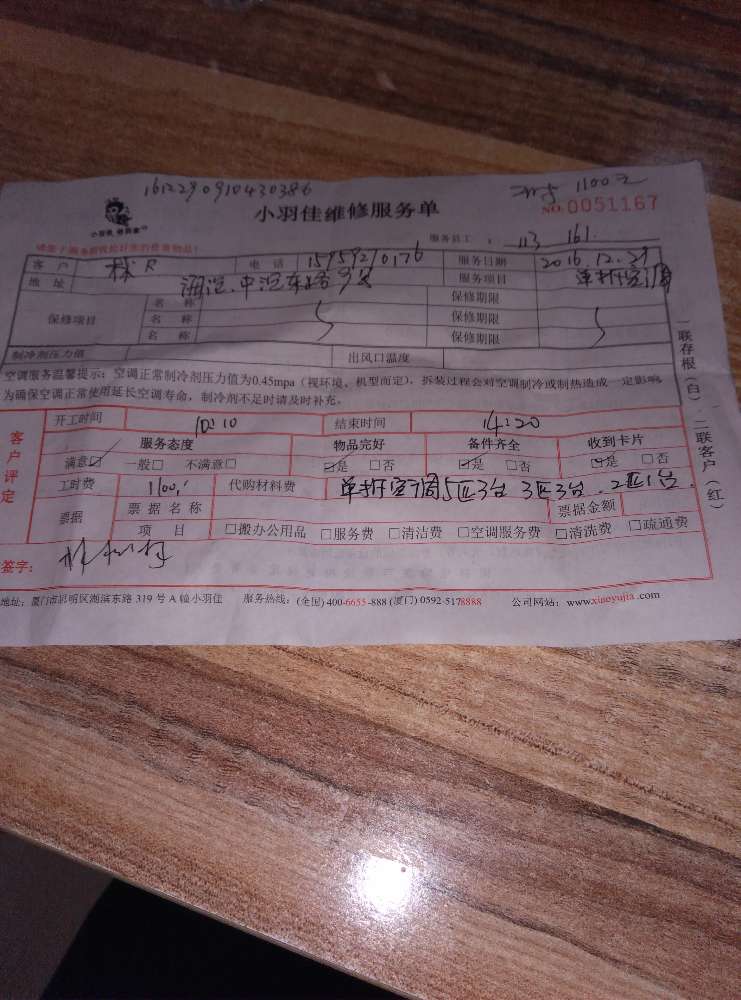 1612290910430386 1100元
小羽佳维修服务单 NO.0051167
服务员工： 113 161.
客户 林R 电话 15959210176 服务日期 2016.12.29
地址 服务项目 单拆空调
保修项目 名称 保修期限
名称 保修期限
名称 保修期限
制冷剂压力值 出风口温度
空调服务温馨提示：空调正常制冷剂压力值为0.45mpa（视环境、机型而定），拆装过程会对空调制冷或制热造成一定影响，
为确保空调正常使用延长空调寿命，制冷剂不足时请及时补充。
一联存根（白）、二联客户（红）
客户评定
开工时间 10:10 结束时间 14:20
服务态度 物品完好 备件齐全 收到卡片
满意☑ 一般☐ 不满意☐ ☑是 ☐否 ☑是 ☐否 ☑是 ☐否
工时费 1100, 代购材料费 单拆空调5匹3台 3匹3台. 2匹1台.
票据 票据名称 票据金额
项目 ☐搬办公用品 ☐服务费 ☐清洁费 ☐空调服务费 ☐清洗费 ☐疏通费
签字：
地址：厦门市思明区湖滨东路 319 号 A 幢小羽佳 服务热线：(全国) 400-6655-888 (厦门) 0592-5178888 公司网站：www.xiaoyujia.com